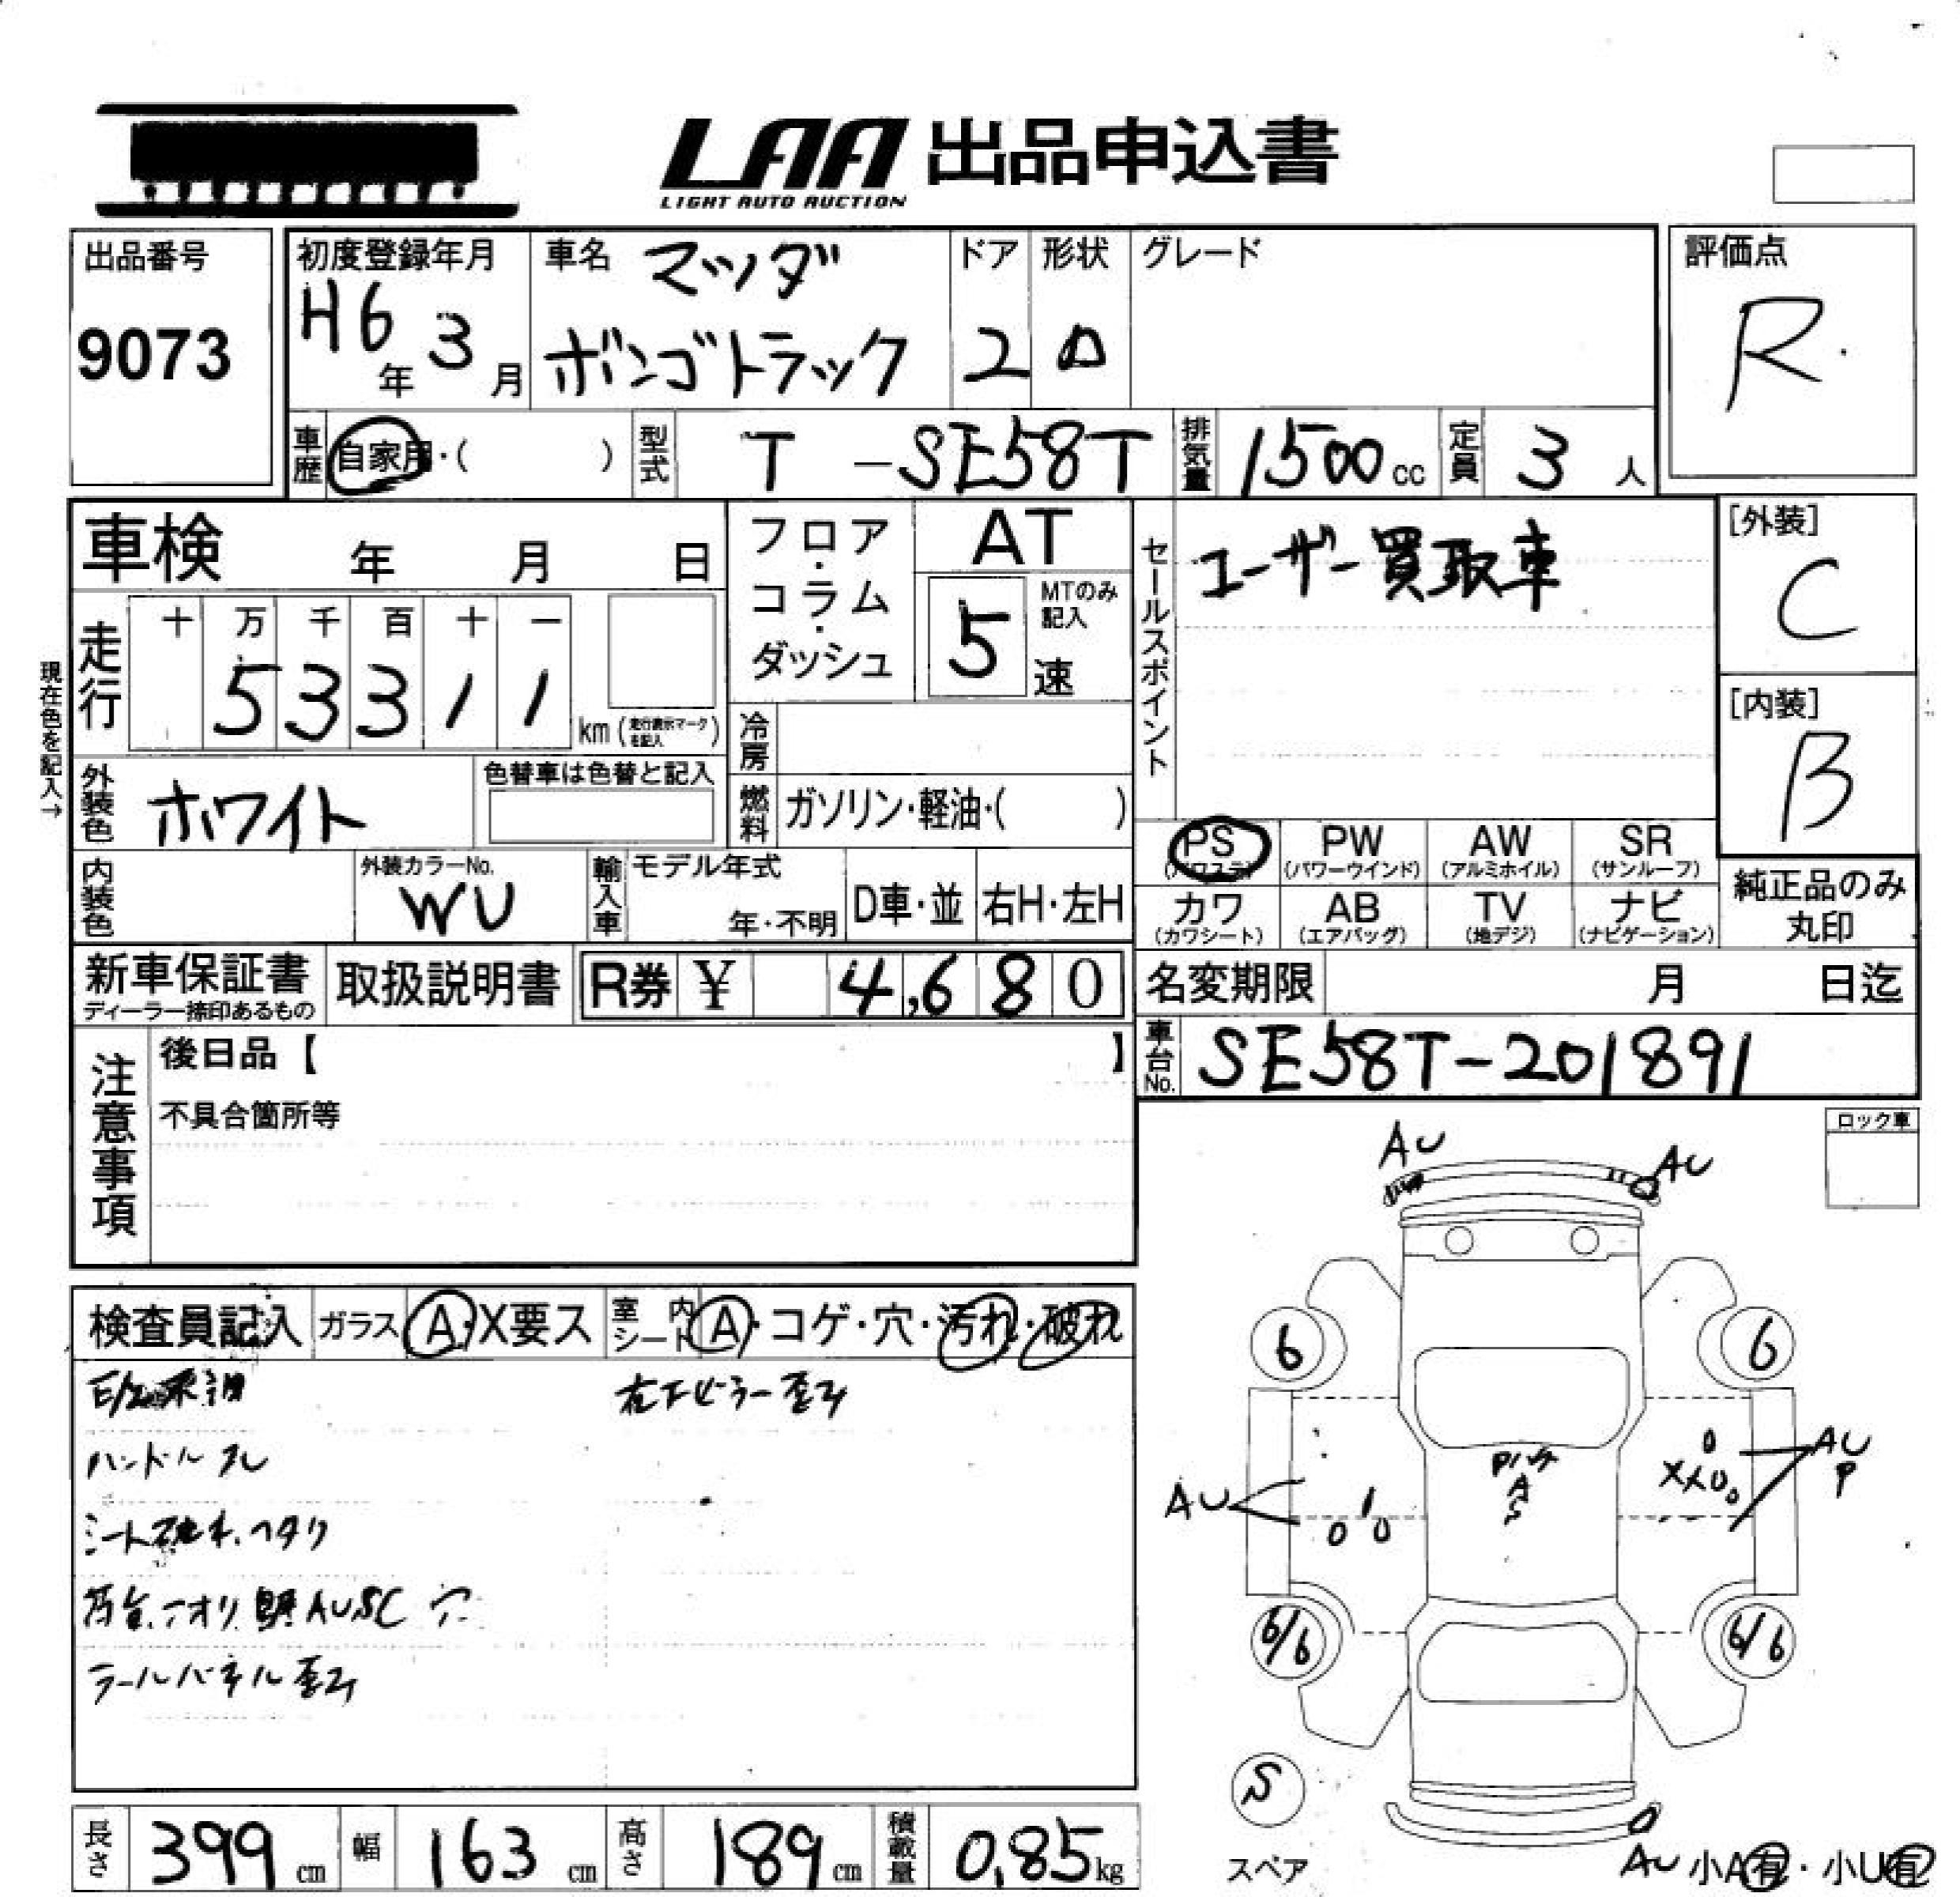 LAA 出品申込書
LIGHT AUTO AUCTION
出品番号
9073
初度登録年月
H6年 3月
車名 マツダ
ボンゴトラック
ドア
2
形状
グレード
評価点
R
車歴 自家用・( )
型式 T -SE58T
排気量 1500cc
定員 3人
車検 年 月 日
走行
十 万 千 百 十 一
5 3 3 1 1 km (走行表示マークを記入)
現在色を記入→
外装色 ホワイト
色替車は色替と記入
内装色
外装カラーNo.
WU
フロア・コラム・ダッシュ
AT
5速
MTのみ記入
冷房
燃料 ガソリン・軽油・( )
輸入車 モデル年式
年・不明
D車・並
右H・左H
セールスポイント
ユーザー買取車
[外装]
C
[内装]
B
PS PW AW SR
(パワステ) (パワーウインド) (アルミホイル) (サンルーフ)
カワ AB TV ナビ
(カワシート) (エアバッグ) (地デジ) (ナビゲーション)
純正品のみ
丸印
新車保証書
ディーラー捺印あるもの
取扱説明書
R券 ¥ 4,680
名変期限 月 日迄
車台No. SE58T-201891
注意事項
後日品【 】
不具合箇所等
ロック車
検査員記入 ガラス A・X要ス 室内シート A・コゲ・穴・汚れ・破れ
右下ピラー歪み
ハンドルスレ
シート破れ.ヘタリ
テールパネル歪み
AU
AU
6
6
AU
A
S
AU
P
6/6
6/6
S
スペア
AU 小A有・小U有
長さ 399cm
幅 163cm
高さ 189cm
積載量 0,85kg